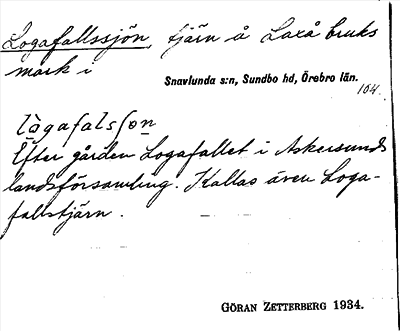 Logafallssjön, tjärn å Laxå bruks
mark i
Snavlunda s:n, Sundbo hd, Örebro län.
104.
lò̀gafalsʃo̤n
Efter gården Logafallet i Askersunds
landsförsamling. Kallas även Loga-
fallstjärn.
GÖRAN ZETTERBERG 1934.